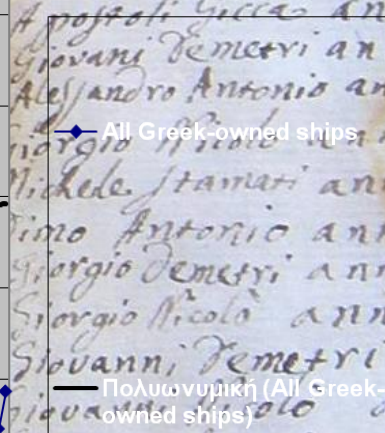 Apostoli Gicca an
Giovani Demetri an
Alessandro Antonio an
All Greek-owned ships
Giorgio Nicolo an
Michele Stamati ann
Dimo Antonio ann
Giorgio Demetri ann
Giorgio Nicolò ann
Giovanni Demetri
Πολυωνυμική (All Greek-
owned ships)